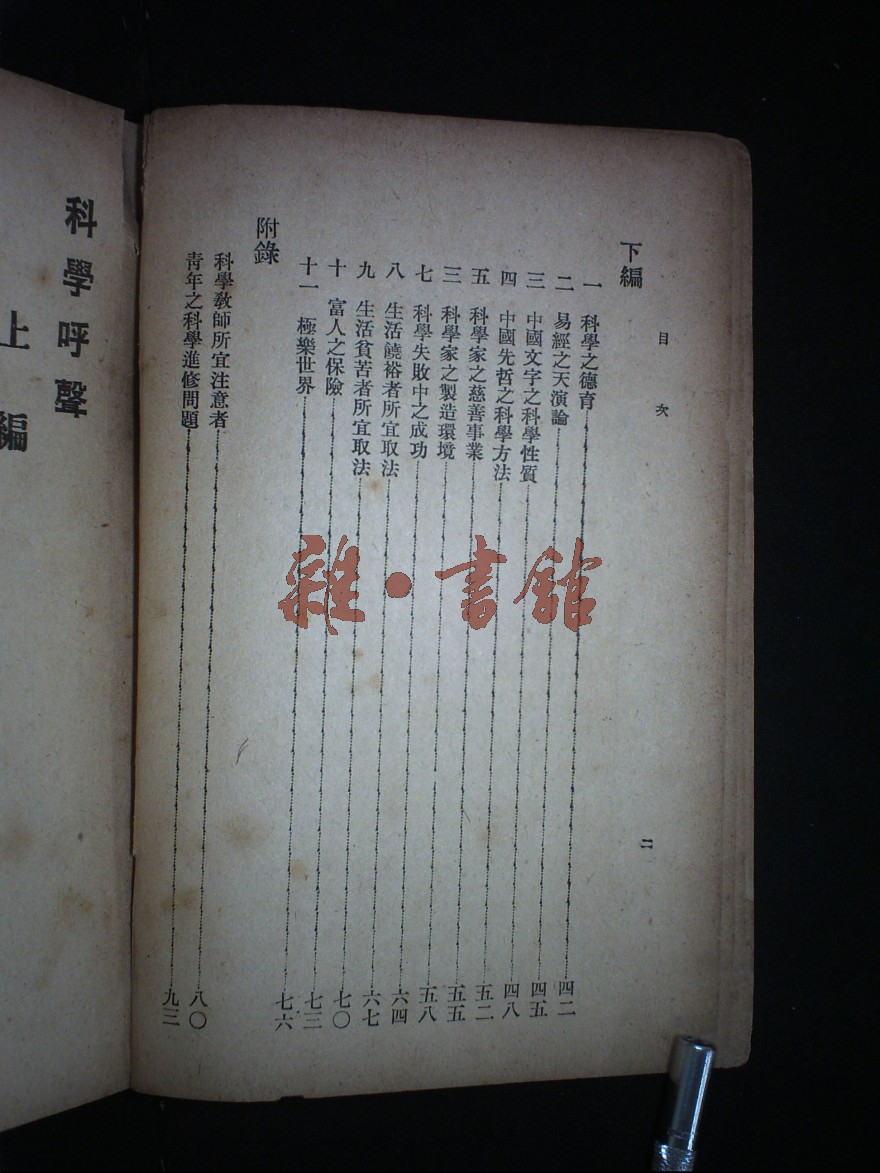 目次 二
下編
一 科學之德育 四二
二 易經之天演論 四五
三 中國文字之科學性質 四八
四 中國先哲之科學方法 五二
五 科學家之慈善事業 五五
三 科學家之製造環境 五八
七 科學失敗中之成功 六四
八 生活饒裕者所宜取法 六七
九 生活貧苦者所宜取法 七〇
十 富人之保險 七三
十一 極樂世界 七六
附錄
科學教師所宜注意者 八〇
青年之科學進修問題 九三
科學呼聲
上編
雜·書館